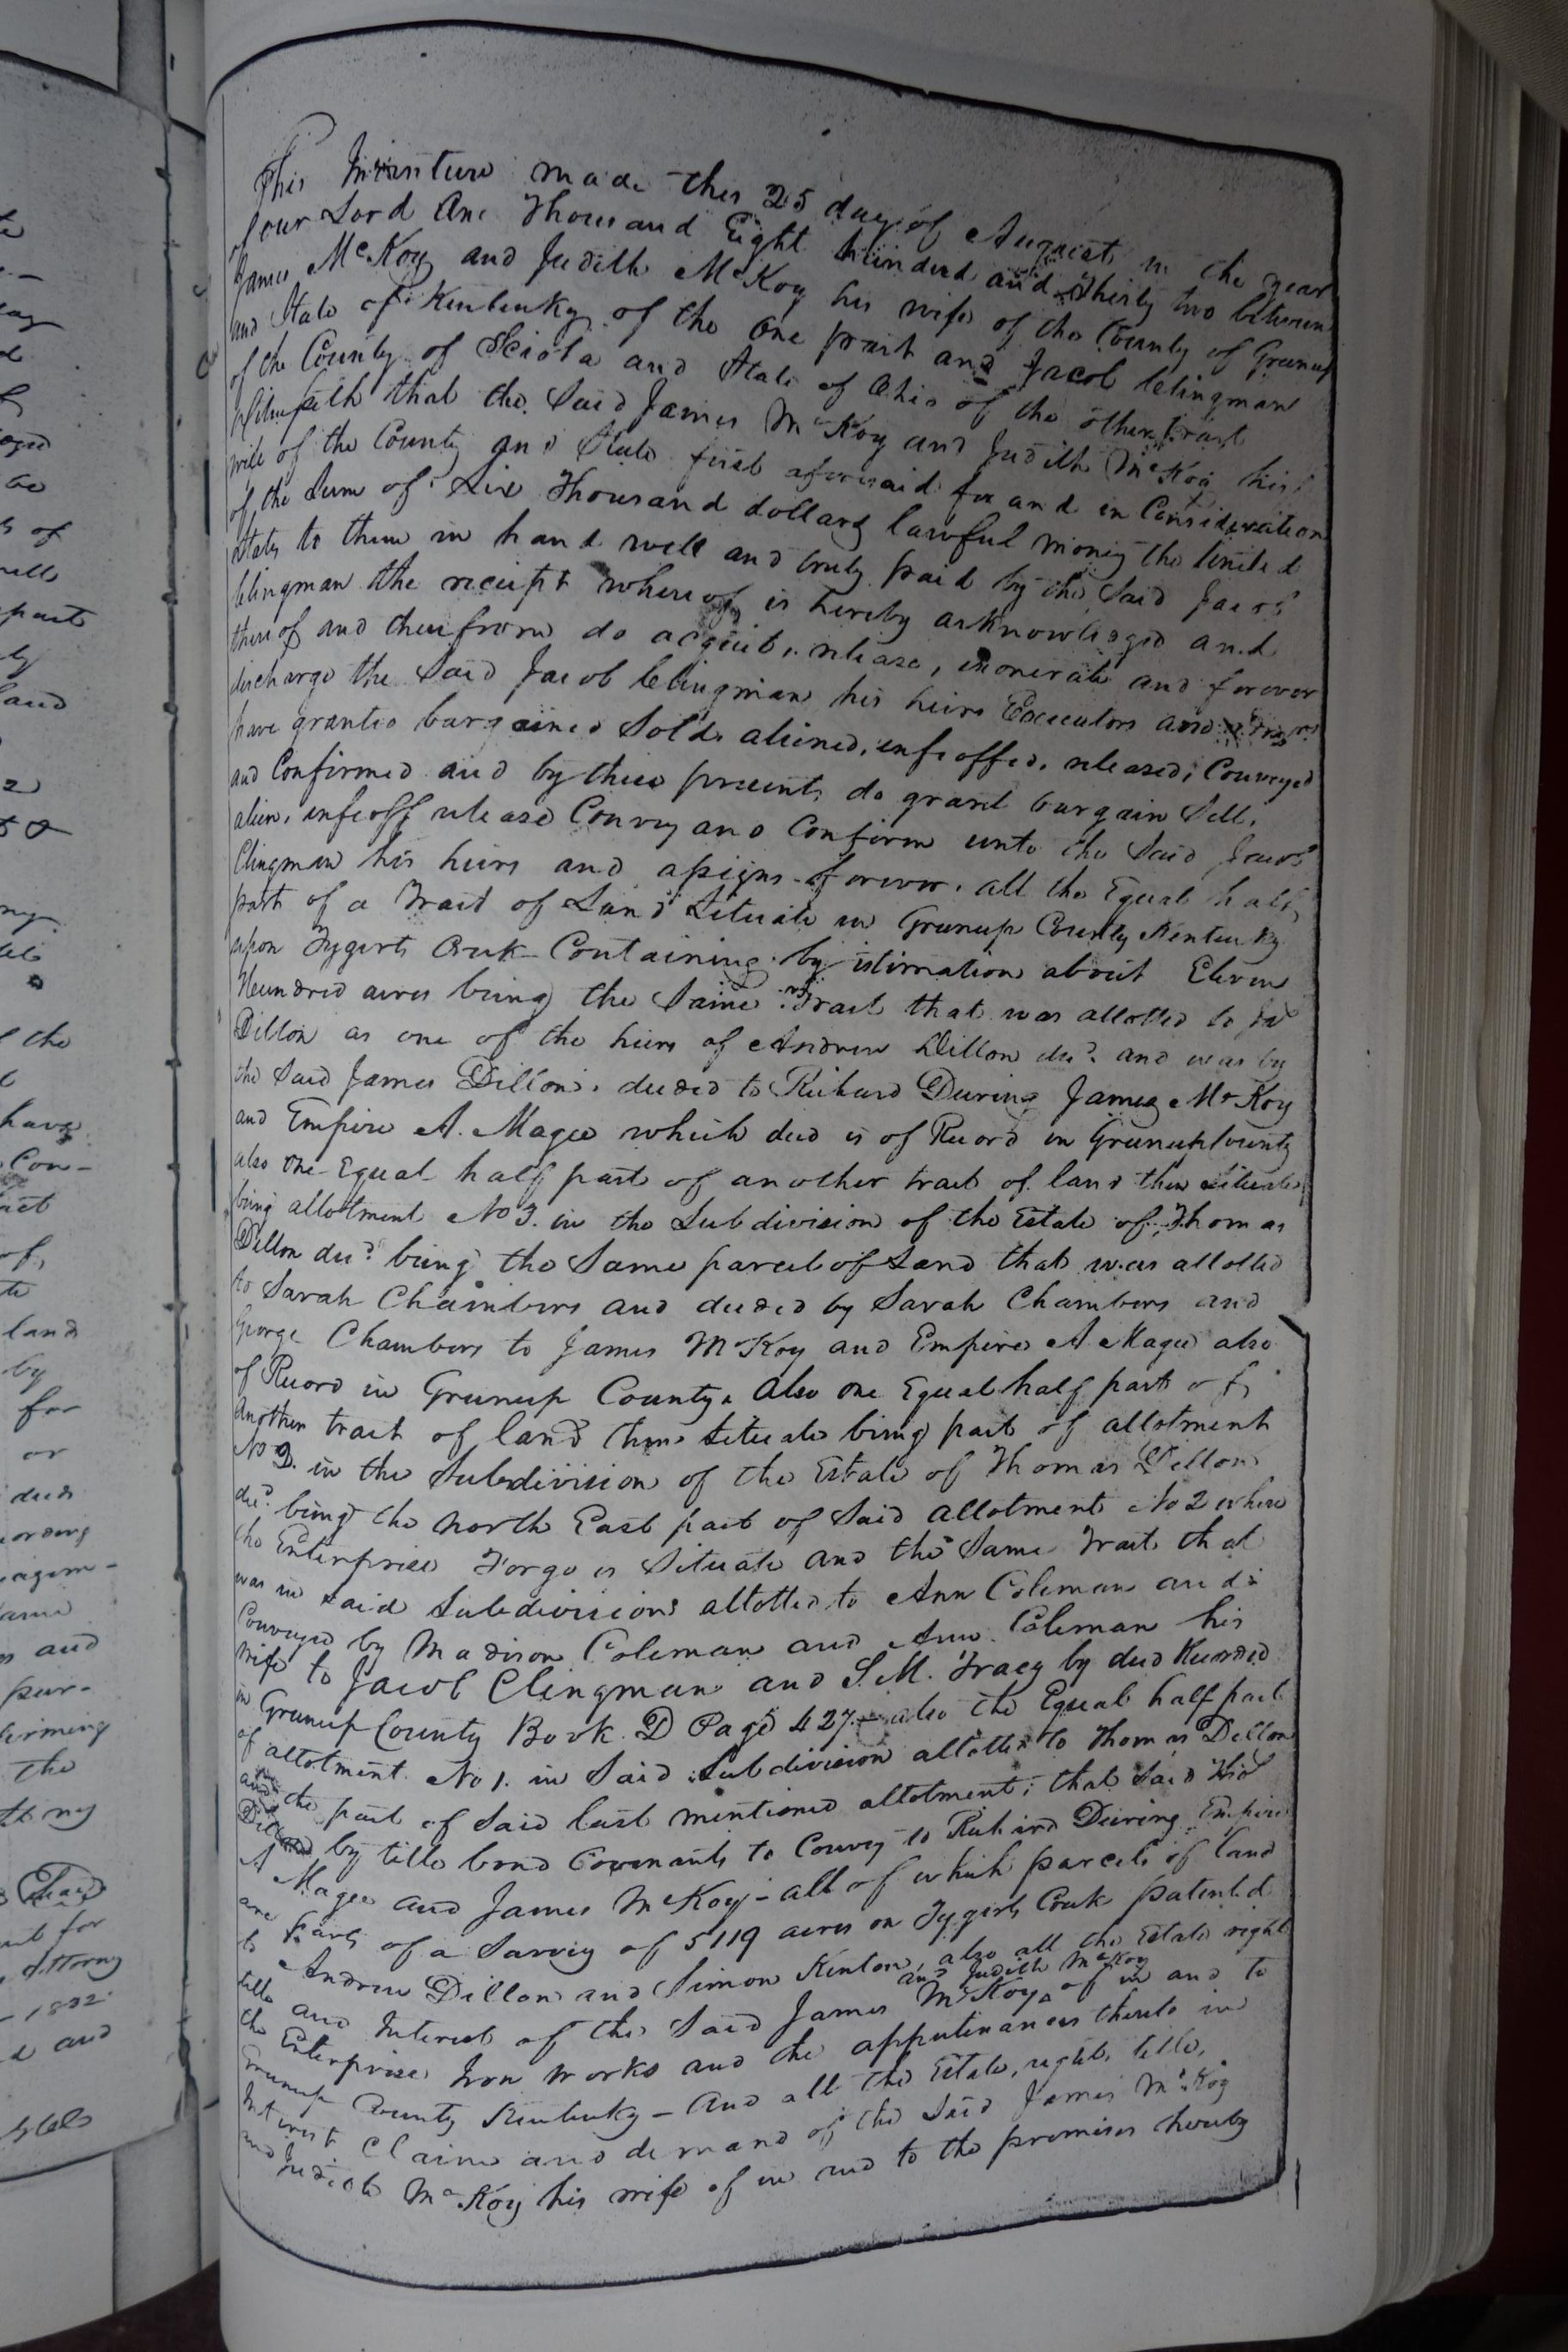 This Indenture made this 25 day of August in the year
of our Lord One Thousand Eight hundred and Thirty two between
James McKoy and Judith McKoy his wife of the County of Greenup
and State of Kentucky of the one part and Jacob Clingman
of the County of Sciota and State of Ohio of the other part
Witnesseth that the Said James McKoy and Judith McKoy his
wife of the County and State first aforesaid for and in Consideration
of the Sum of Six Thousand dollars lawful money the United
States to them in hand well and truly paid by the Said Jacob
Clingman the receipt whereof is hereby acknowledged and
thereof and therefrom do acquit, release, exonerate and forever
discharge the Said Jacob Clingman his heirs Executors and
have granted bargained Sold, aliened, enfeoffed, released, Conveyed
and Confirmed and by these presents do grant bargain Sell,
alien, enfeoff release Convey and Confirm unto the Said Jacob
Clingman his heirs and assigns forever, all the Equal half
part of a Tract of Land Situate in Greenup County Kentucky
upon Tygerts Creek Containing by estimation about Eleven
Hundred acres being the Same Tract that was allotted to Jas
Dillon as one of the heirs of Andrew Dillon decd. and was by
the Said James Dillon, deeded to Richard Deering James McKoy
and Empire A. Magee which deed is of Record in Greenup County
also one Equal half part of another tract of land there Situate
being allotment No 3. in the Subdivision of the Estate of Thomas
Dillon decd. being the Same parcel of Land that was allotted
to Sarah Chambers and deeded by Sarah Chambers and
George Chambers to James McKoy and Empire A Magee also
of Record in Greenup County. Also one Equal half part of
Another tract of land there Situate being part of allotment
No 2. in the Subdivision of the Estate of Thomas Dillon
decd. being the North East part of Said allotment No 2 where
the Enterprise Forge is Situate and the Same Tract that
was in said Subdivision allotted to Ann Coleman and
Conveyed by Madison Coleman and Ann Coleman his
wife to Jacob Clingman and S. M. Tracy by deed Recorded
in Greenup County Book D Page 427 - also the Equal half part
of allotment No 1. in Said Subdivision allotted to Thomas Dillon
the part of Said last mentioned allotment, that Said Thos
Dillon by title bond Covenants to Convey to Richard Deering Empire
A Magee and James McKoy - all of which parcels of land
are parts of a Survey of 5119 acres on Tygerts Creek patented
to Andrew Dillon and Simon Kenton, also all the Estate right
title and Interest of the Said James McKoy and Judith McKoy of in and to
the Enterprise Iron Works and the appurtenances thereto in
Greenup County Kentucky - And all the Estate, right, title,
Interest Claim and demand of the Said James McKoy
and Judith McKoy his wife of in and to the premises hereby